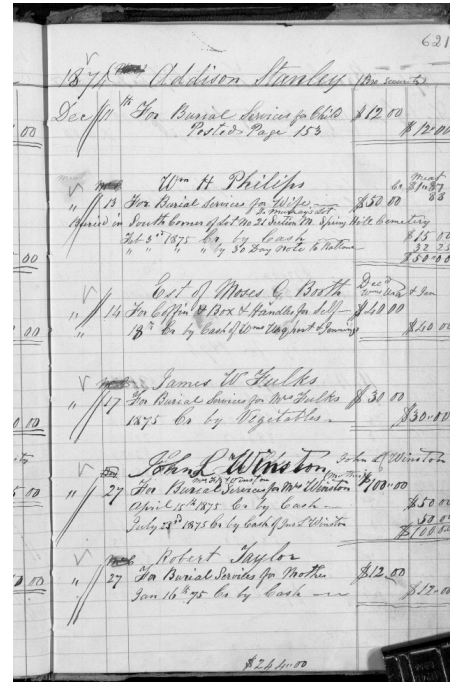 621
1874 Addison Stanley (No Security)
Dec 11th For Burial Services for Child $12 00
Posted Page 153 $12.00
Wm H Philips
" 13 For Burial Services for Wife $50 00
Buried in South Corner of Lot No 21 Section Spring Hill Cemetery
Feb 3rd 1875 Cr by Cash $15 00
" " " " by 30 Day Note to Balance
$50.00
Est of Moses G Booth
" 14 For Coffin & Box & Handles for Self $40 00
Cr by Cash of $40.00
James W Fulks
" 17 For Burial Services for Mrs Fulks $30 00
1875 Cr by Vegetables $30.00
John L Winston John L Winston
" 27 For Burial Services for Mrs Winston $100.00
April 15th 1875 Cr by Cash $50 00
July 23rd 1875 Cr by Cash of Jno L Winston 50 00
$100.00
Robert Taylor
" 27 For Burial Services for Mother $12 00
Jan 16th 75 Cr by Cash $12.00
$244.00